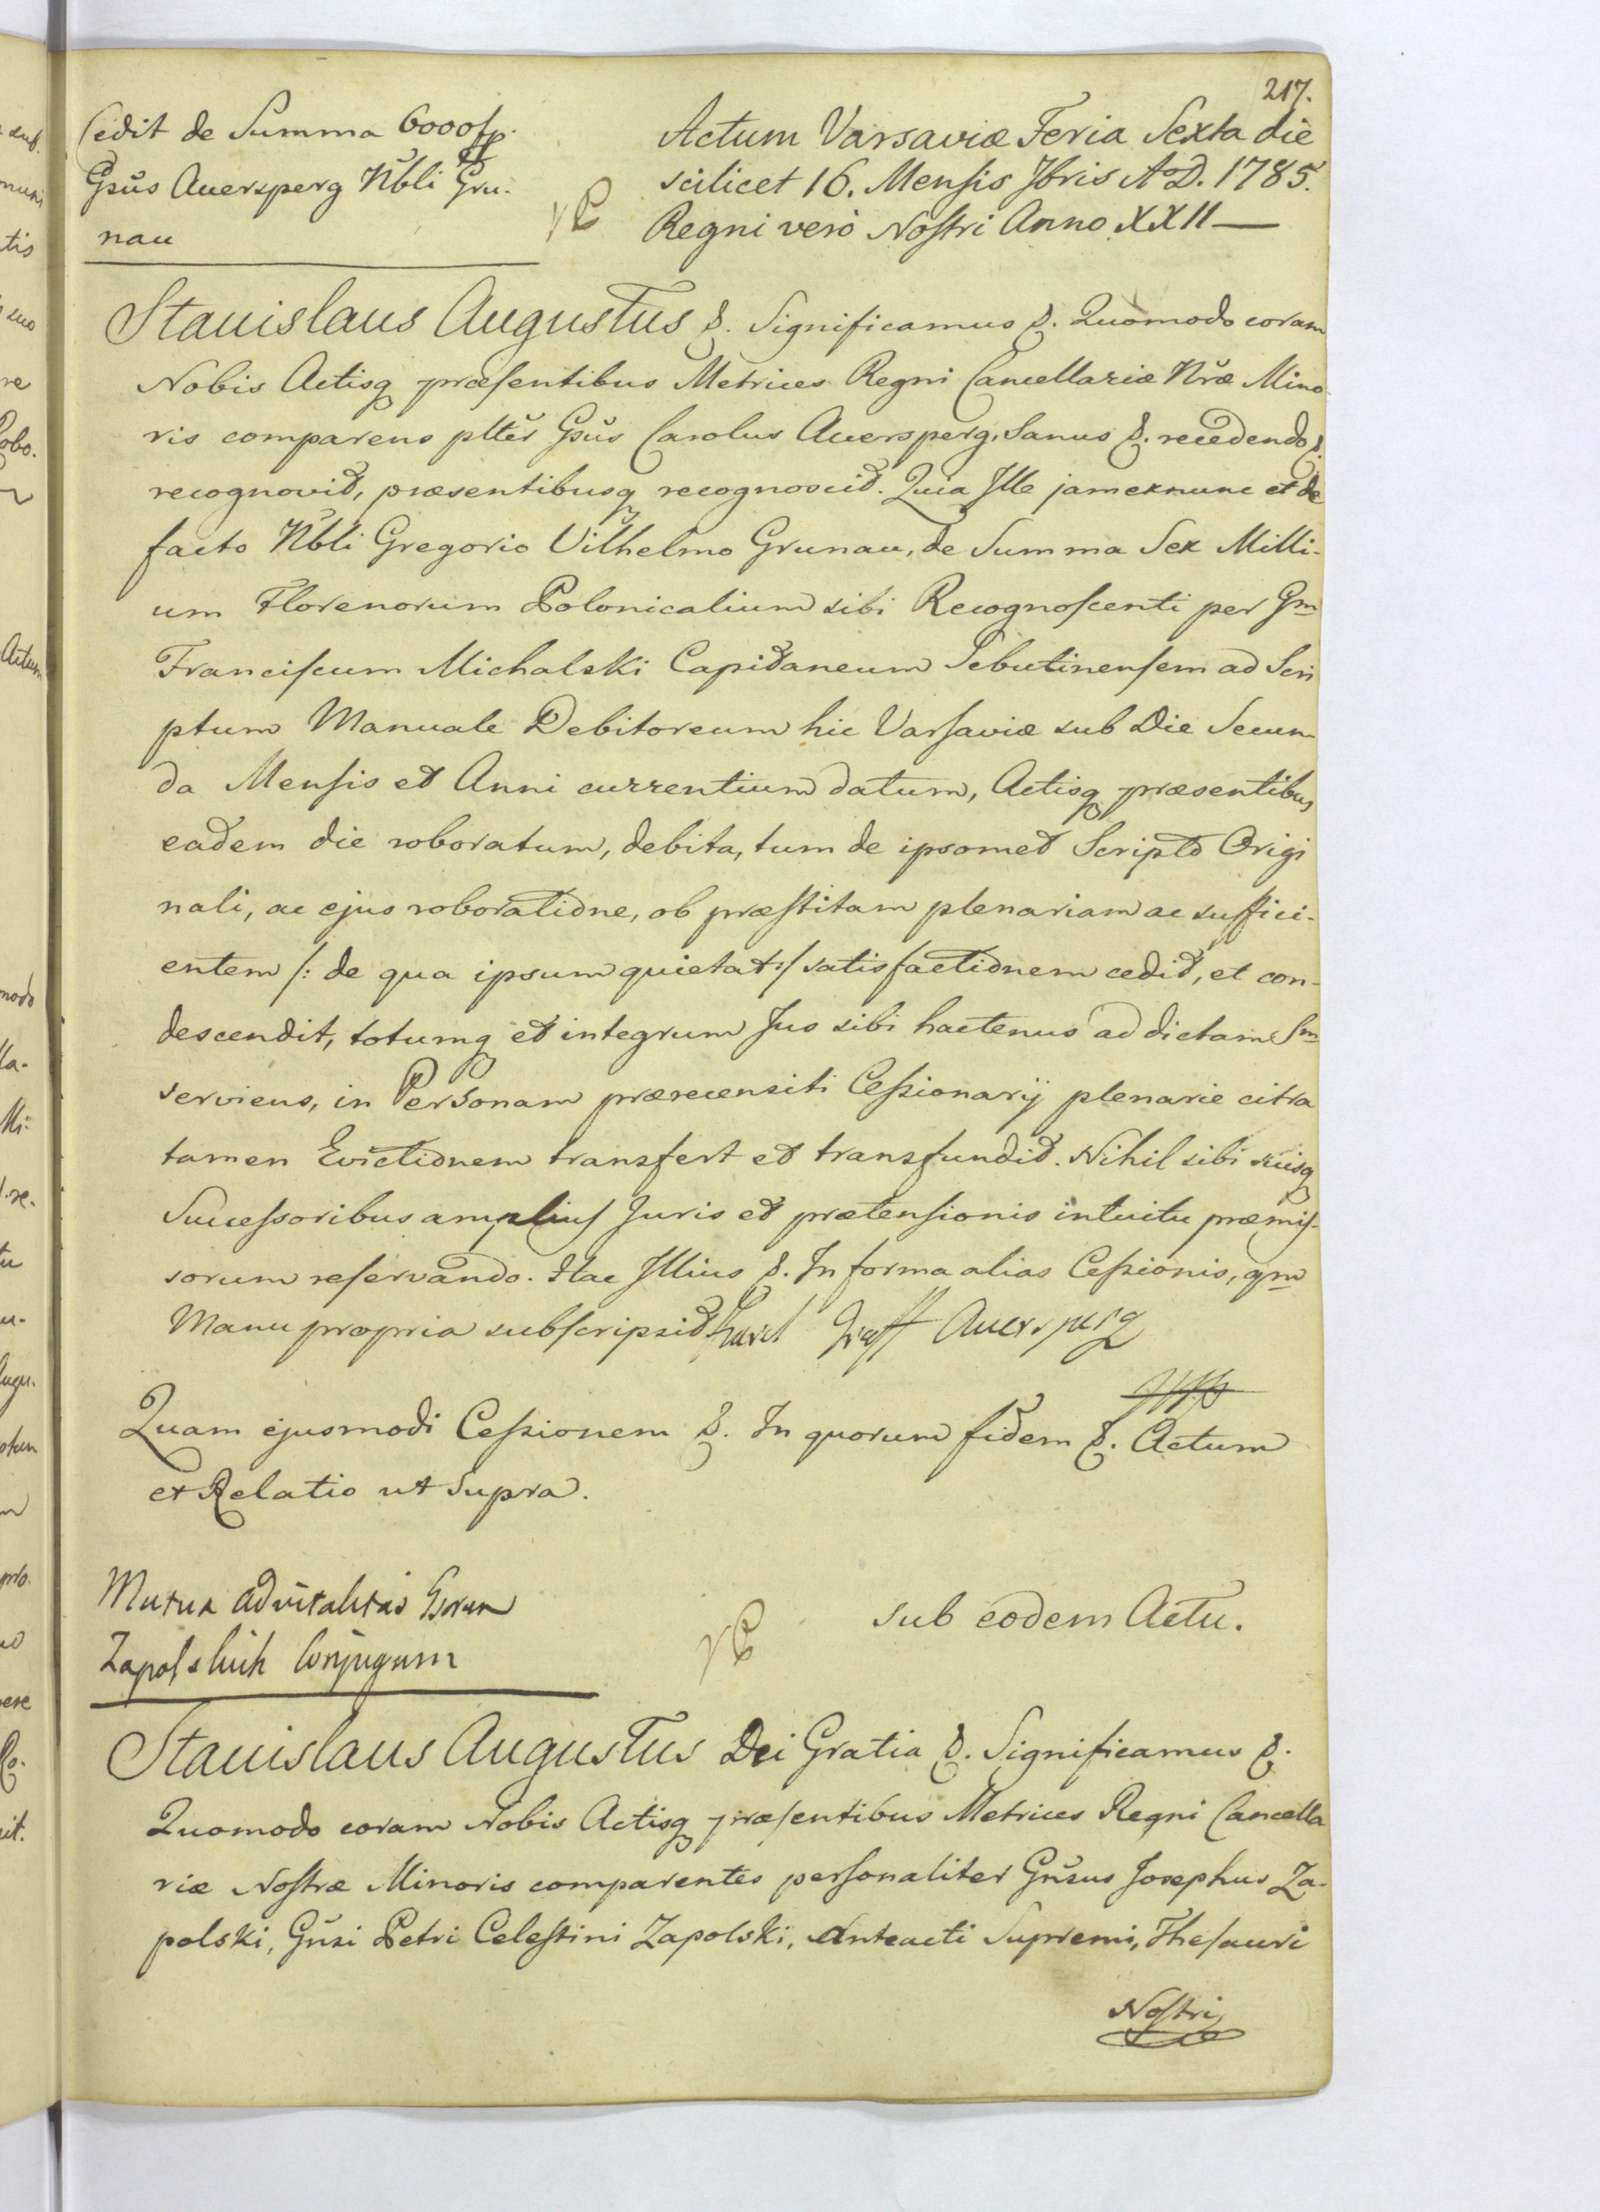 217.
Cedit de Summa 6000 fp.
Gsus Auersperg Nbli Gru-
nau
Actum Varsaviæ Feria Sexta die
scilicet 16. Mensis 7bris A°D. 1785.
Regni vero Nostri Anno XXII —
Stanislaus Augustus &. Significamus &. Quomodo coram
Nobis Actisq præsentibus Metrices Regni Cancellariæ Nræ Mino
ris comparens plter Gsus Carolus Auersperg, Sanus &. recedendo &.
recognovit, præsentibusq recognoscit. Quia Ille jam exnunc et de
facto Nbli Gregorio Vilhelmo Grunau, de Summa Sex Milli-
um Florenorum Polonicalium sibi Recognoscenti per Gm
Franciscum Michalski Capitaneum Jebutinensem ad Scri
ptum Manuale Debitoreum hic Varsaviæ sub Die Secun
da Mensis et Anni currentium datum, Actisq præsentibus
eadem die roboratum, debita, tum de ipsomet Scripto Origi
nali, ac ejus roboratione, ob præstitam plenariam ac suffici-
entem /: de qua ipsum quietat :/ satisfactionem cedit, et con-
descendit, totumq et integrum Jus sibi hactenus ad dictam Sm
serviens, in Personam prærecensiti Cessionarij plenarie citra
tamen Evictionem transfert et transfundit. Nihil sibi suisq
Successoribus amplius Juris et prætensionis intuitu præmis-
sorum reservando. Hac Illius &. In forma alias Cessionis, qm
Manu propria subscripsit Karl Graff Auersperg
Quam ejusmodi Cessionem &. In quorum fidem &. Actum
et Relatio ut supra.
Mutua advitalitas Gsorum
Zapolskich Conjugum
sub eodem Actu.
Stanislaus Augustus Dei Gratia &. Significamus &.
Quomodo coram Nobis Actisq præsentibus Metrices Regni Cancella
riæ Nostræ Minoris comparentes personaliter Gnsus Josephus Za-
polski, Gnsi Petri Celestini Zapolski, Anteacti Supremi, Thesauri
Nostri